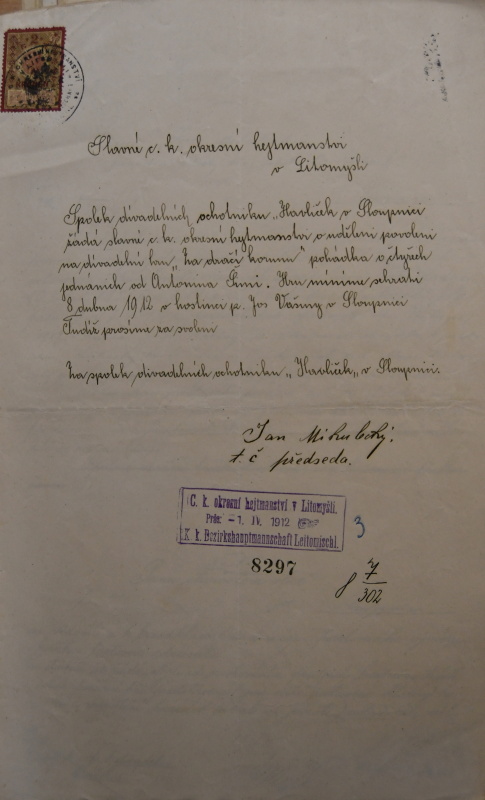 Slavné c. k. okresní hejtmanství
v Litomyšli
Spolek dívadelních ochotníku „Havlíček v Sloupnici
žádá slavné c. k. okresní hejtmanství o udělení povolení
na dívadelní hru „Za dračí korunu" pohádka o čtyřech
jednáních od Antonína Šimi. Hru míníme sehrati
8 dubna 1912 v hostinci p. Jos Vašiny v Sloupnici
Tudíž prosíme za svolení
Za spolek divadelních ochotníku „Havlíček„ v Sloupnici.
Jan Mikulecký.
t. č předseda.
C. k. okresní hejtmanství v Litomyšli.
Präs: -1. IV. 1912
K. k. Bezirkshauptmannschaft Leitomischl.
3
8297
7
302